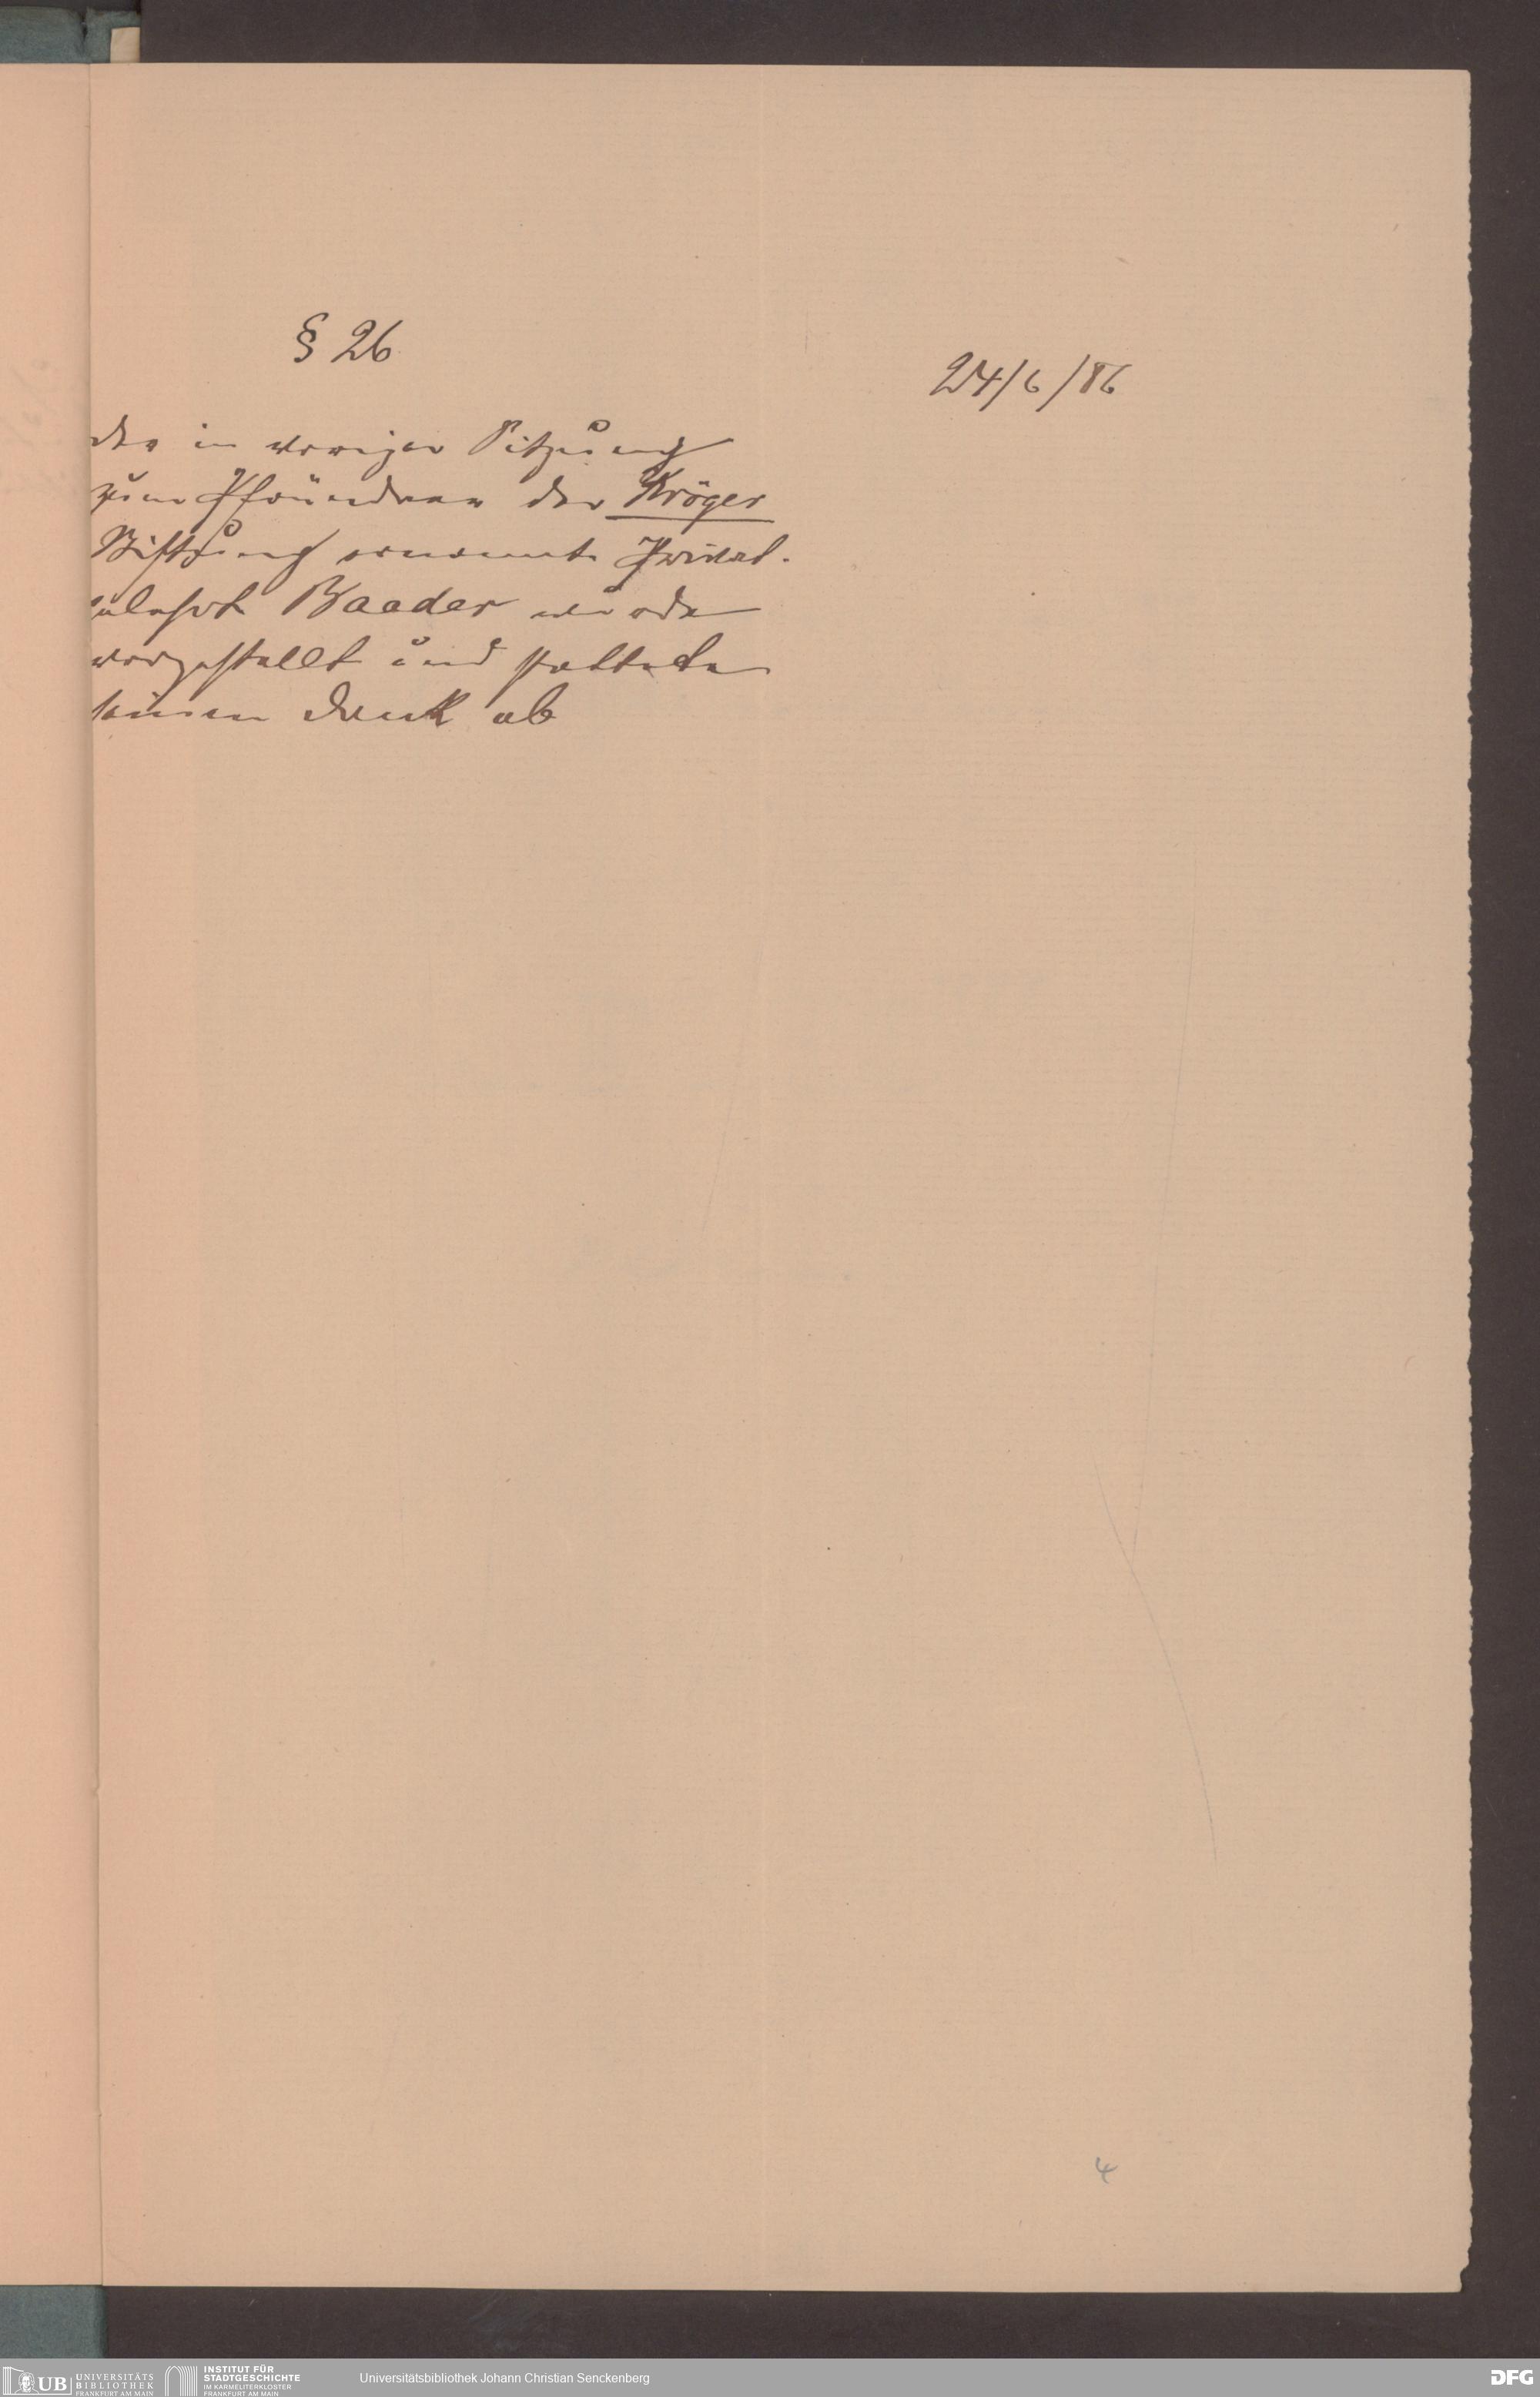 § 26
24/6/86
der in voriger Sitzung
zum Pfründner der Kröger
Stiftung ernannte Privat-
Baader wurde
vorgestellt und stattete
seinen Dank ab
4
UB UNIVERSITÄTS
BIBLIOTHEK
FRANKFURT AM MAIN
INSTITUT FÜR
STADTGESCHICHTE
IM KARMELITERKLOSTER
FRANKFURT AM MAIN
Universitätsbibliothek Johann Christian Senckenberg
DFG